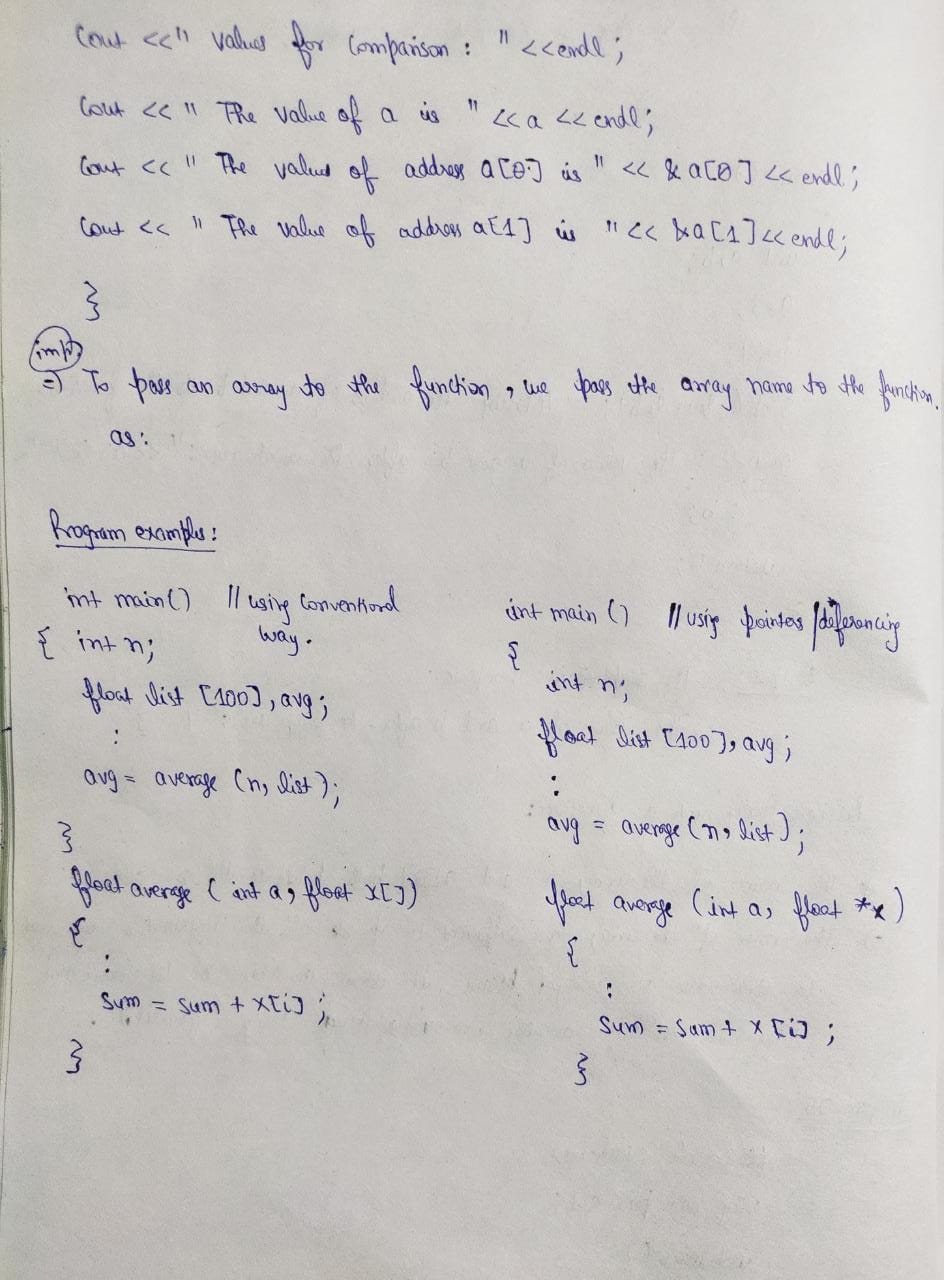 Cout <<" values for Comparison : " <<endl;
Cout << " The value of a is " <<a <<endl;
Cout << " The valued of address a[0] is " << &a[0] << endl;
Cout << " The value of address a[1] is " << &a[1]<<endl;
}
imp.
=) To pass an array to the function , we pass the array name to the function.
as:
Program examples:
int main() // using Conventional
way.
{ int n;
float list [100], avg;
:
avg = average (n, list);
}
float average ( int a, float x[])
{
:
sum = sum + x[i] ;
}
int main () // using pointers /deferencing
{
int n;
float list [100], avg ;
:
avg = average (n, list);
float average (int a, float *x )
{
:
sum = sum + x [i] ;
}